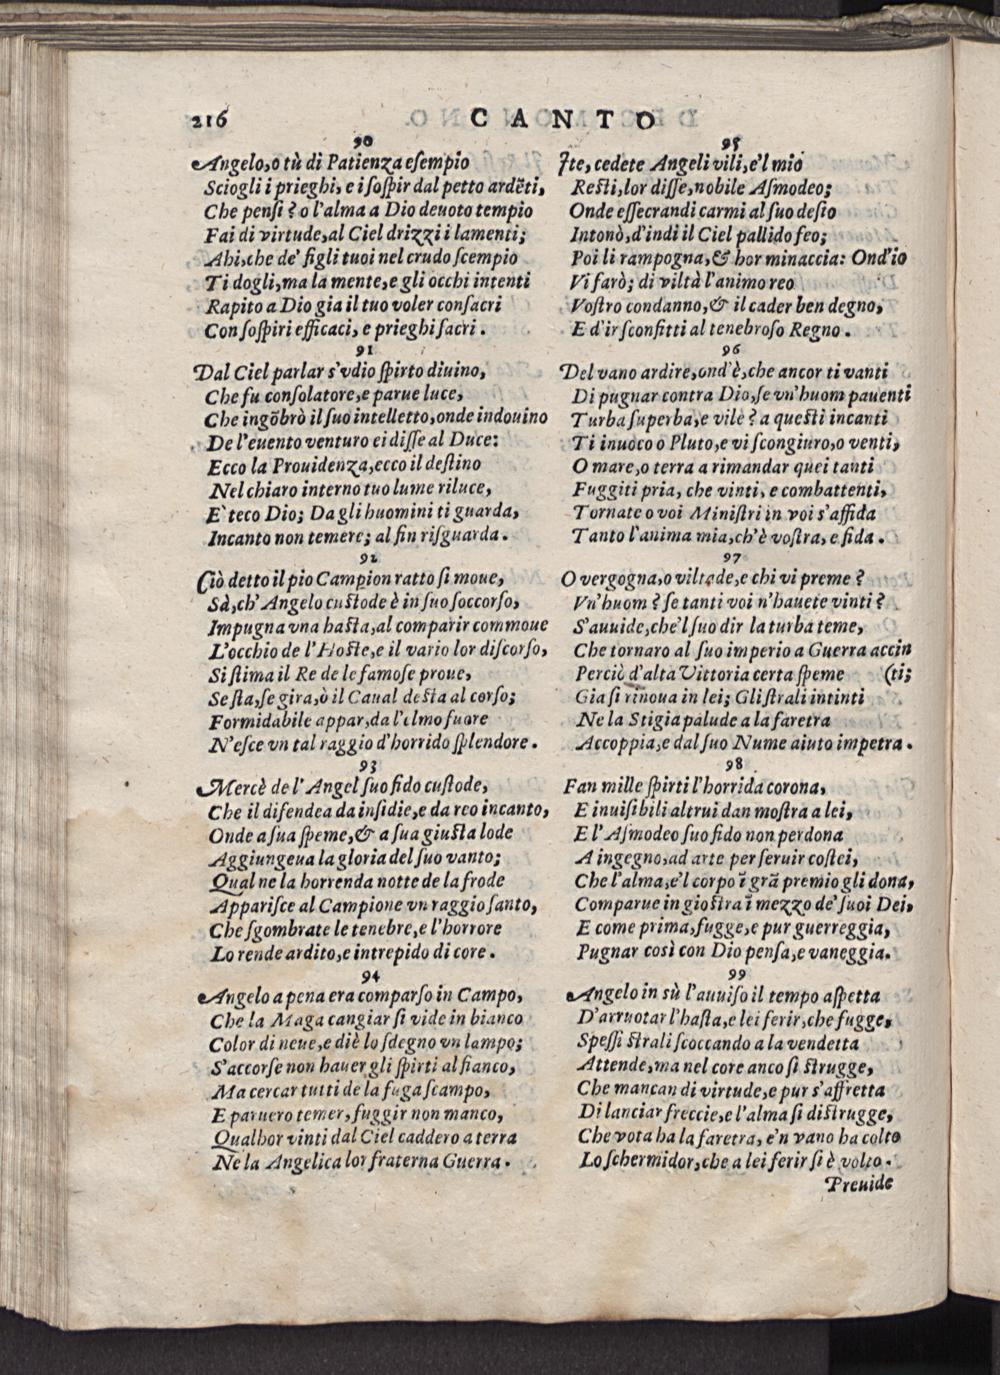 216 CANTO
90
Angelo, o tù di Patienza esempio
Sciogli i prieghi, e i sospir dal petto ardẽti,
Che pensi? o l'alma a Dio deuoto tempio
Fai di virtude, al Ciel drizzi i lamenti;
Ahi, che de' figli tuoi nel crudo scempio
Ti dogli, ma la mente, e gli occhi intenti
Rapito a Dio gia il tuo voler consacri
Con sospiri efficaci, e prieghi sacri.
91
Dal Ciel parlar s'vdio spirto diuino,
Che fu consolatore, e parue luce,
Che ingõbrò il suo intelletto, onde indouino
De l'euento venturo ei disse al Duce:
Ecco la Prouidenza, ecco il destino
Nel chiaro interno tuo lume riluce,
E` teco Dio; Da gli huomini ti guarda,
Incanto non temere; al fin risguarda.
92
Ciò detto il pio Campion ratto si moue,
Sà, ch' Angelo custode è in suo soccorso,
Impugna vna hasta, al comparir commoue
L'occhio de l'Hoste, e il vario lor discorso,
Si stima il Re de le famose proue,
Se sta, se gira, ò il Caual desta al corso;
Formidabile appar, da l'elmo fuore
N'esce vn tal raggio d'horrido splendore.
93
Mercè de l'Angel suo fido custode,
Che il difendea da insidie, e da reo incanto,
Onde a sua speme, & a sua giusta lode
Aggiungeua la gloria del suo vanto;
Qual ne la horrenda notte de la frode
Apparisce al Campione vn raggio santo,
Che sgombrate le tenebre, e l'horrore
Lo rende ardito, e intrepido di core.
94
Angelo a pena era comparso in Campo,
Che la Maga cangiar si vide in bianco
Color di neue, e diè lo sdegno vn lampo;
S'accorse non hauer gli spirti al fianco,
Ma cercar tutti de la fuga scampo,
E paruero temer, fuggir non manco,
Qualhor vinti dal Ciel caddero a terra
Ne la Angelica lor fraterna Guerra.
95
Ite, cedete Angeli vili, e'l mio
Resti, lor disse, nobile Asmodeo;
Onde essecrandi carmi al suo desio
Intonò, d'indi il Ciel pallido feo;
Poi li rampogna, & hor minaccia: Ond'io
Vi farò; di viltà l'animo reo
Vostro condanno, & il cader ben degno,
E d'ir sconfitti al tenebroso Regno.
96
Del vano ardire, ond'è, che ancor ti vanti
Di pugnar contra Dio, se vn'huom pauenti
Turba superba, e vile? a questi incanti
Ti inuoco o Pluto, e vi scongiuro, o venti,
O mare, o terra a rimandar quei tanti
Fuggiti pria, che vinti, e combattenti,
Tornate o voi Ministri in voi s'affida
Tanto l'anima mia, ch'è vostra, e fida.
97
O vergogna, o viltade, e chi vi preme?
Vn'huom? se tanti voi n'hauete vinti?
S'auuide, che'l suo dir la turba teme,
Che tornaro al suo imperio a Guerra accin
Perciò d'alta Vittoria certa speme (ti;
Gia si rinoua in lei; Gli strali intinti
Ne la Stigia palude a la faretra
Accoppia, e dal suo Nume aiuto impetra.
98
Fan mille spirti l'horrida corona,
E inuisibili altrui dan mostra a lei,
E l'Asmodeo suo fido non perdona
A ingegno, ad arte per seruir costei,
Che l'alma, e'l corpo ĩ grã premio gli dona,
Comparue in giostra ĩ mezzo de' suoi Dei,
E come prima, fugge, e pur guerreggia,
Pugnar così con Dio pensa, e vaneggia.
99
Angelo in sù l'auuiso il tempo aspetta
D'arruotar l'hasta, e lei ferir, che fugge,
Spessi strali scoccando a la vendetta
Attende, ma nel core anco si strugge,
Che mancan di virtude, e pur s'affretta
Di lanciar freccie, e l'alma si distrugge,
Che vota ha la faretra, e'n vano ha colto
Lo schermidor, che a lei ferir si è volto.
Preuide